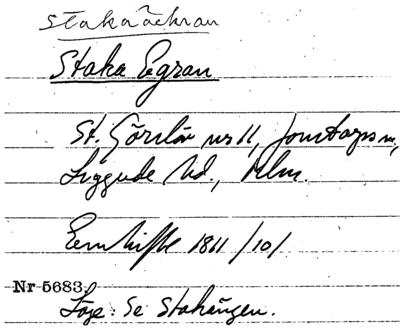 Stakaåckran
Staka Egran
St. Görslöv nr 11, Jonstorps sn,
Luggude hd., Mlm.
Enskifte 1811 /10/
Nr 5683
Läge: Se Stakängen.